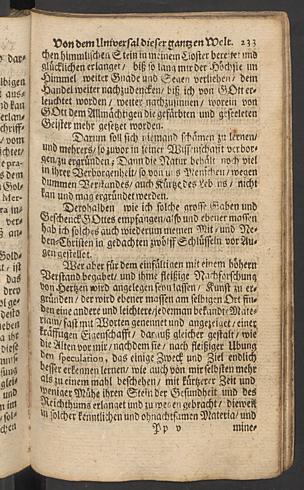 Von dem Universal dieser gantzen Welt. 233
chen himmlischen Stein in meinem Closter bereitet und
glücklichen erlanget / biß so lang mir der Höchste im
Himmel weiter Gnade und Segen verliehen / dem
Handel weiter nachzudencken / biß ich von GOtt er-
leuchtet worden / weiter nachzusinnen / worein von
GOtt dem Allmächtigen die gefärbten und gifeeleten
Geister mehr gesetzet worden.
Darum soll sich niemand schämen zu lernen /
und mehrers / so zuvor in seiner Wissenschafft verbor-
gen zu ergründen; Dann die Natur behält noch viel
in ihrer Verborgenheit / so von uns Menschen / wegen
dummen Verstandes / auch Kürtze des Lebens / nicht
kan und mag ergründet werden.
Derohalben wie ich solche grosse Gaben und
Geschenck GOttes empfangen / also und ebener massen
hab ich solches auch wiederum meinen Mit- und Ne-
ben-Christen in gedachten zwölff Schlüsseln vor Au-
gen gestellet.
Wer aber für dem einfältigen mit einem höhern
Verstand begabet / und ihme fleißige Nachforschung
von Hertzen wird angelegen seyn lassen / Kunst zu er-
gründen / der wird ebener massen am selbigen Ort fin-
den eine andere und leichtere / jederman bekandte Mate-
riam / fast mit Worten genennet und angezeiget / einer
kräfftigen Eigenschafft / daraus gleicher gestalt / wie
die Alten vor mir / nachdem sie / nach fleißiger Ubung
den speculation, das einige Zweck und Ziel endlich
besser erkennen lernen / wie auch von mir selbsten mehr
als zu einem mahl beschehen / mit kürtzerer Zeit und
weniger Mühe ihren Stein der Gesundheit und des
Reichthums erlanget und zu wegen gebracht / dieweil
in solcher kenntlichen und ohnachtsamen Materia / und
P p v mine-